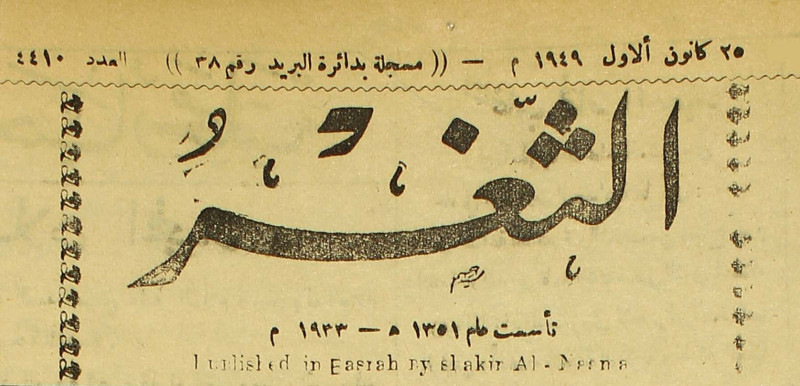 ٢٥ كانون ألاول ١٩٤٩ م — (( مسجلة بدائرة البريد رقم ٣٨ )) العدد ٤٤١٠
الثغر
تأسست عام ١٣٥١ ه — ١٩٣٣ م
Published in Basrah By shakir Al-Neema